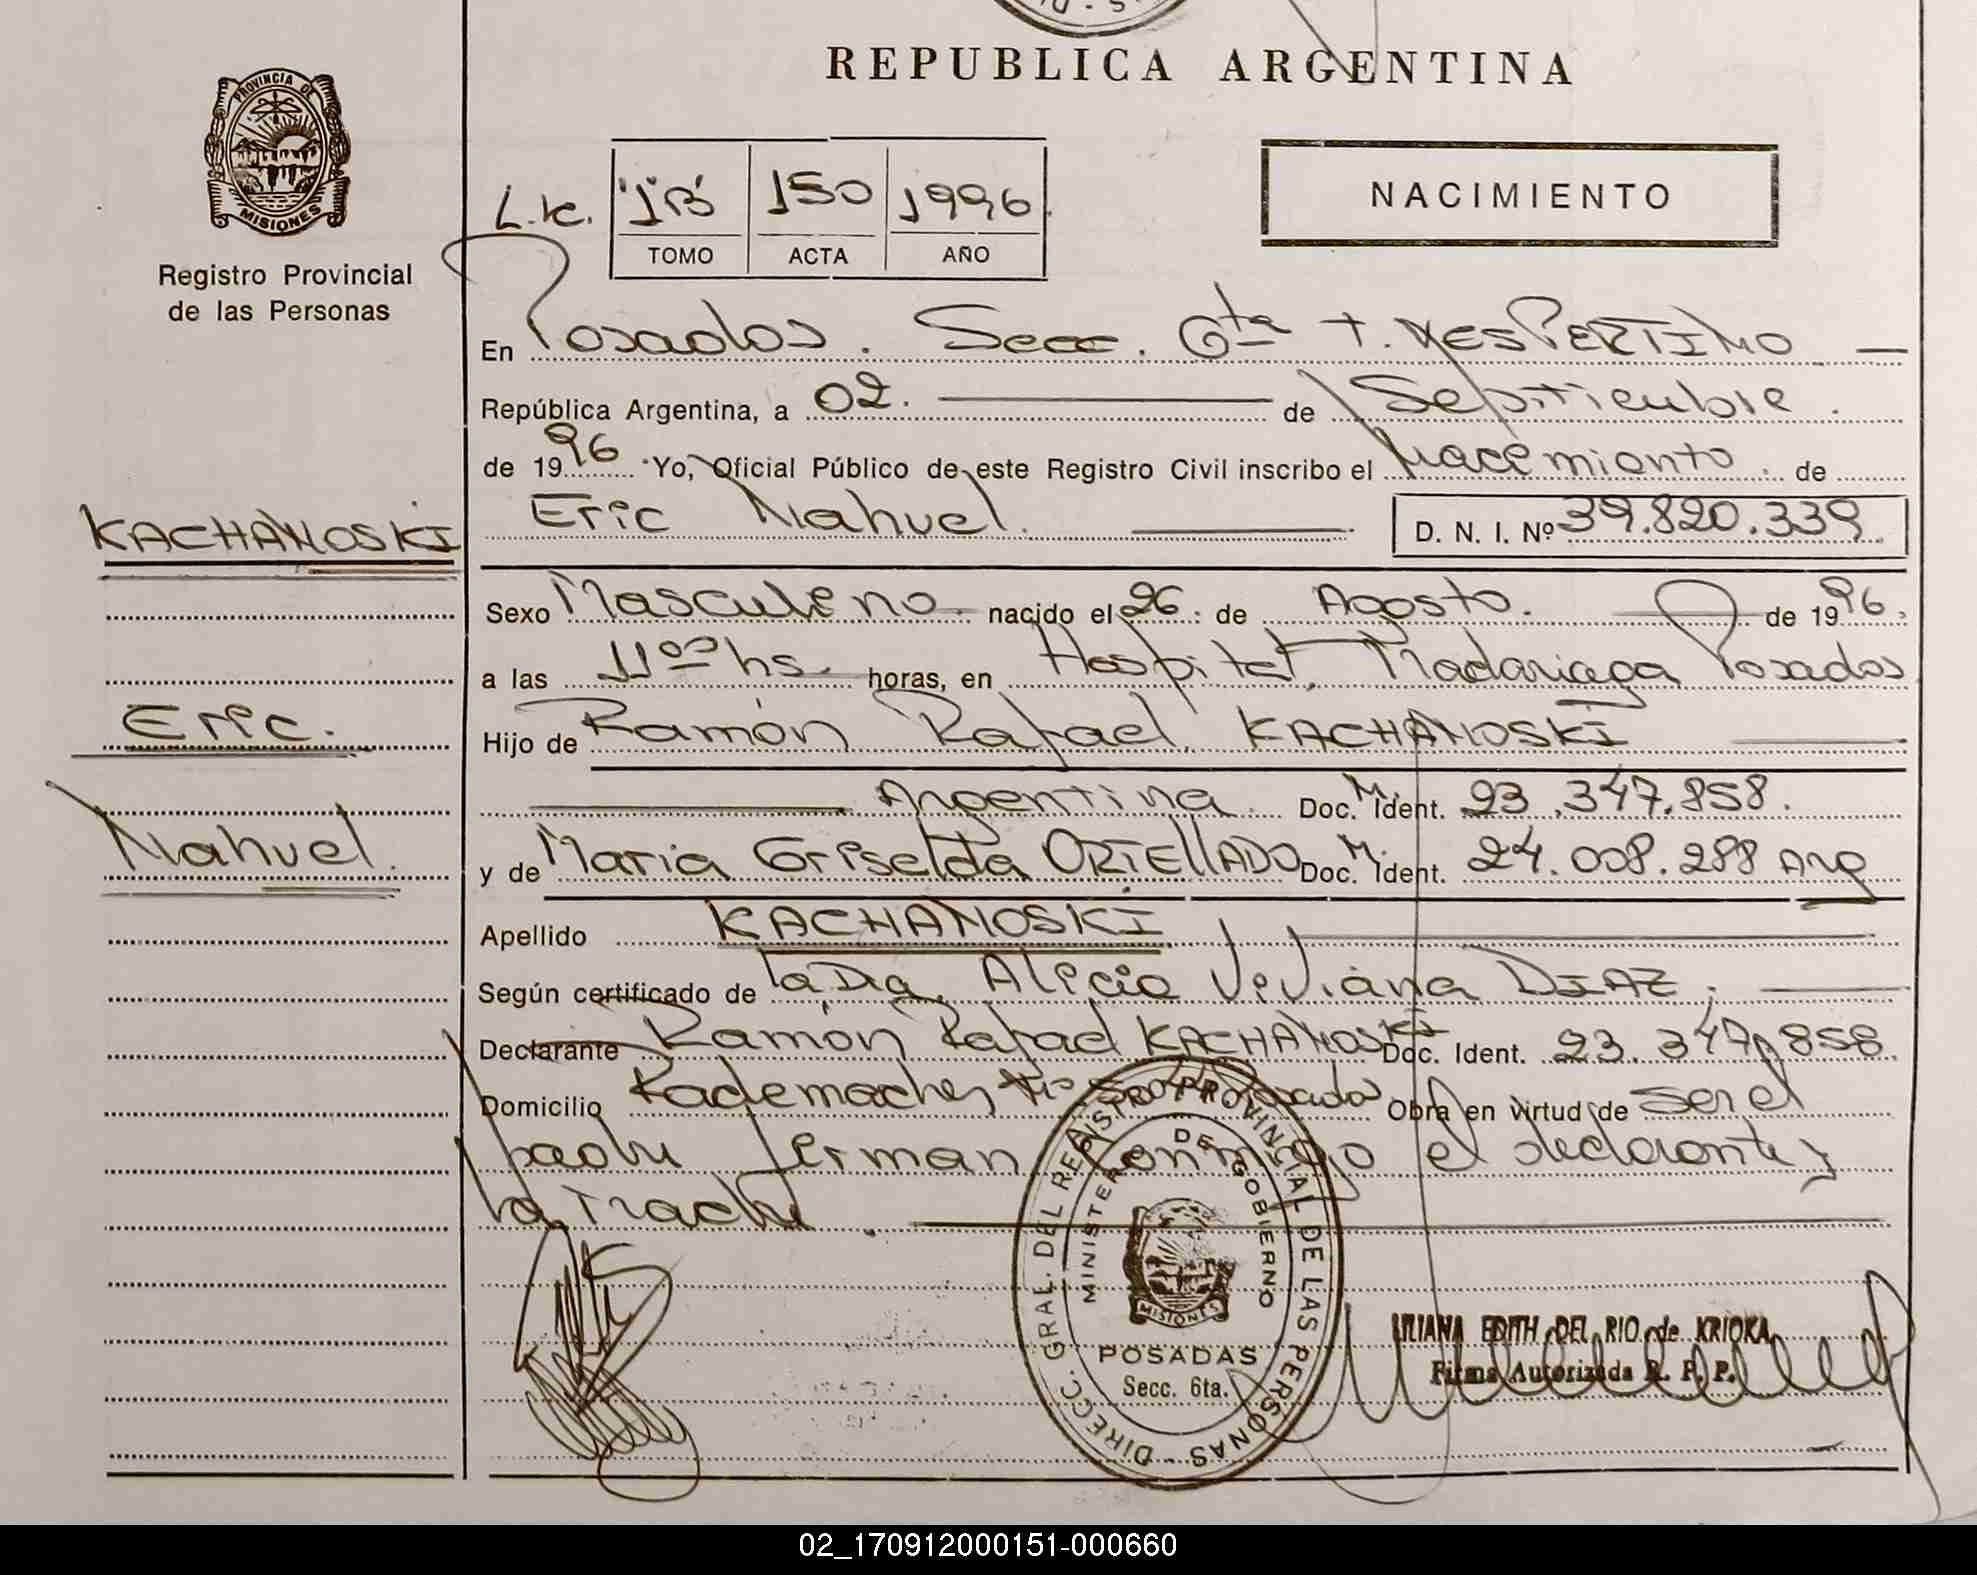 REPUBLICA ARGENTINA
PROVINCIA DE
MISIONES
Registro Provincial
de las Personas
"1B" 150 1996
TOMO ACTA AÑO
NACIMIENTO
En Posadas. Secc. 6ta T. VESPERTINO
República Argentina, a 02. de Septiembre.
de 1996 Yo, Oficial Público de este Registro Civil inscribo el Nacimiento. de
Eric Nahuel. D. N. I. Nº 39.820.339
KACHANOSKI
Sexo Masculino nacido el 26. de Agosto. de 1996.
a las 11:00 hs. horas, en Hospital Madariaga Posadas
Eric.
Hijo de Ramón Rafael KACHANOSKI
Argentina. Doc. M. Ident. 23.347.858.
Nahuel.
y de Maria Griselda ORTELLADO Doc. M. Ident. 24.008.288 Arg
Apellido KACHANOSKI
Según certificado de la Dra. Alicia Viviana DIAZ,
Declarante Ramón Rafael KACHANOSKI Doc. Ident. 23.347.858
Domicilio Posadas Obra en virtud de ser el
padre firman conmigo el declarante y
la madre.
DIRECC. GRAL. DEL REGISTRO PROVINCIAL DE LAS PERSONAS
MINISTERIO DE GOBIERNO
MISIONES
POSADAS
Secc. 6ta.
LILIANA EDITH DEL RIO de KRIOKA
Firma Autorizada R. P. P.
02_170912000151-000660